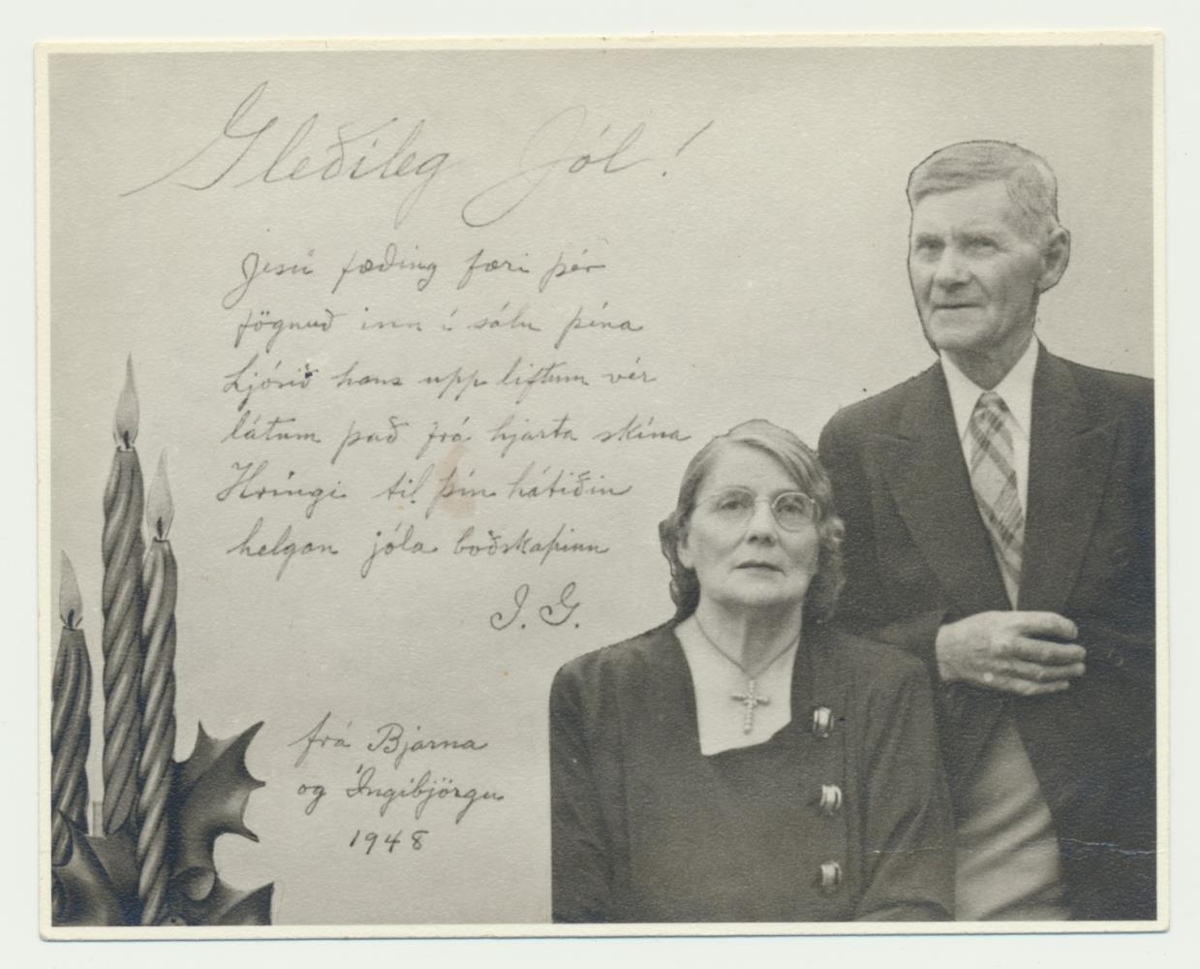 Gleðileg Jól!
Jesú fæðing færi þér
fögnuð inn í sálu þína
Ljósið hans upp liftum vér
látum það frá hjarta skína
Hringi til þín hátiðin
helgan jóla boðskapinn
I. G.
frá Bjarna
og Ingibjörgu
1948